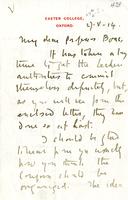 EXETER COLLEGE,
OXFORD.
27-X-14.
My dear Professor Bose,
It has taken a long
time to get the London
authorities to commit
themselves definitely, but
as you will see from the
enclosed letter, they have
done so at last.
I should be glad
to hear from you exactly
how you think the
Congress should be
organized. The idea